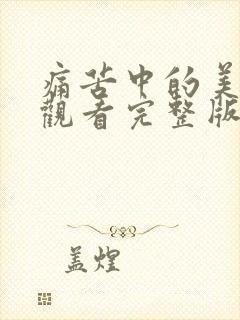 痛苦中的美
觀看完整版
盖煌